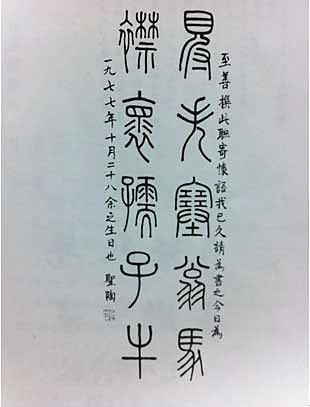 至善撰此聯寄懷語我已久請為書之今日為
得失塞翁馬
襟懷孺子牛
一九七七年十月二十八余之生日也 聖陶